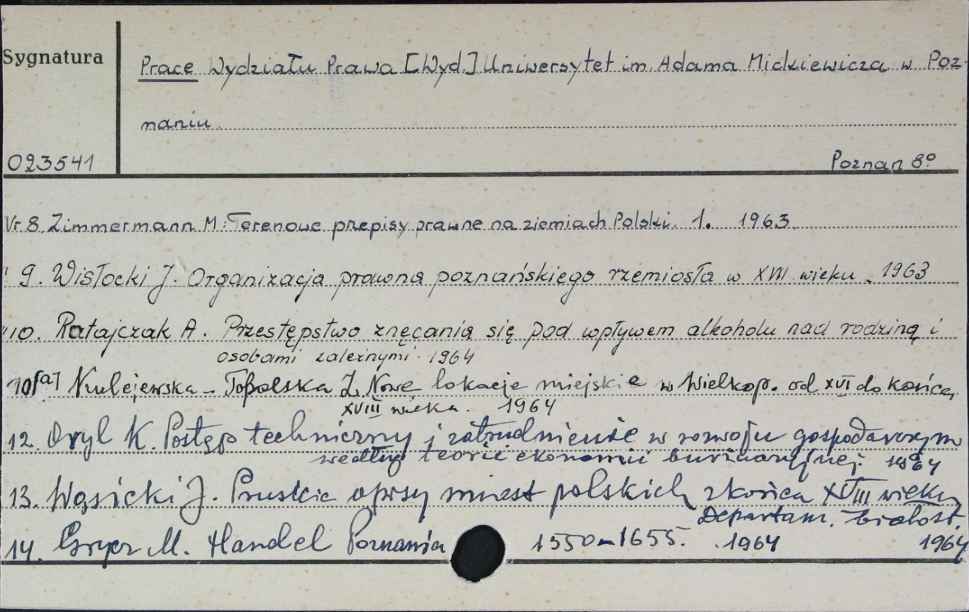 Sygnatura
Prace Wydziału Prawa [Wyd.] Uniwersytet im. Adama Mickiewicza w Poz-
naniu
023541
Poznań 8°
Nr 8. Zimmermann M: Terenowe przepisy prawne na ziemiach Polski. 1. 1963
" 9. Wisłocki J. Organizacja prawna poznańskiego rzemiosła w XVIII wieku. 1963
" 10. Ratajczak A. Przestępstwo znęcania się pod wpływem alkoholu nad rodziną i
osobami zależnymi. 1964
10[a] Kulejewska-Topolska Z. Nowe lokacje miejskie w Wielkop. od XVI do końca
XVIII wieku. 1964
12. Opyl K. Postęp techniczny i zatrudnienie w rozwoju gospodarczym
według teorii ekonomii burżuazyjnej. 1964
13. Wąsicki J. Pruskie opisy miast polskich z końca XVIII wieku
Departam. białost.
1964
14. Grycz M. Handel Poznania 1550-1655. 1964